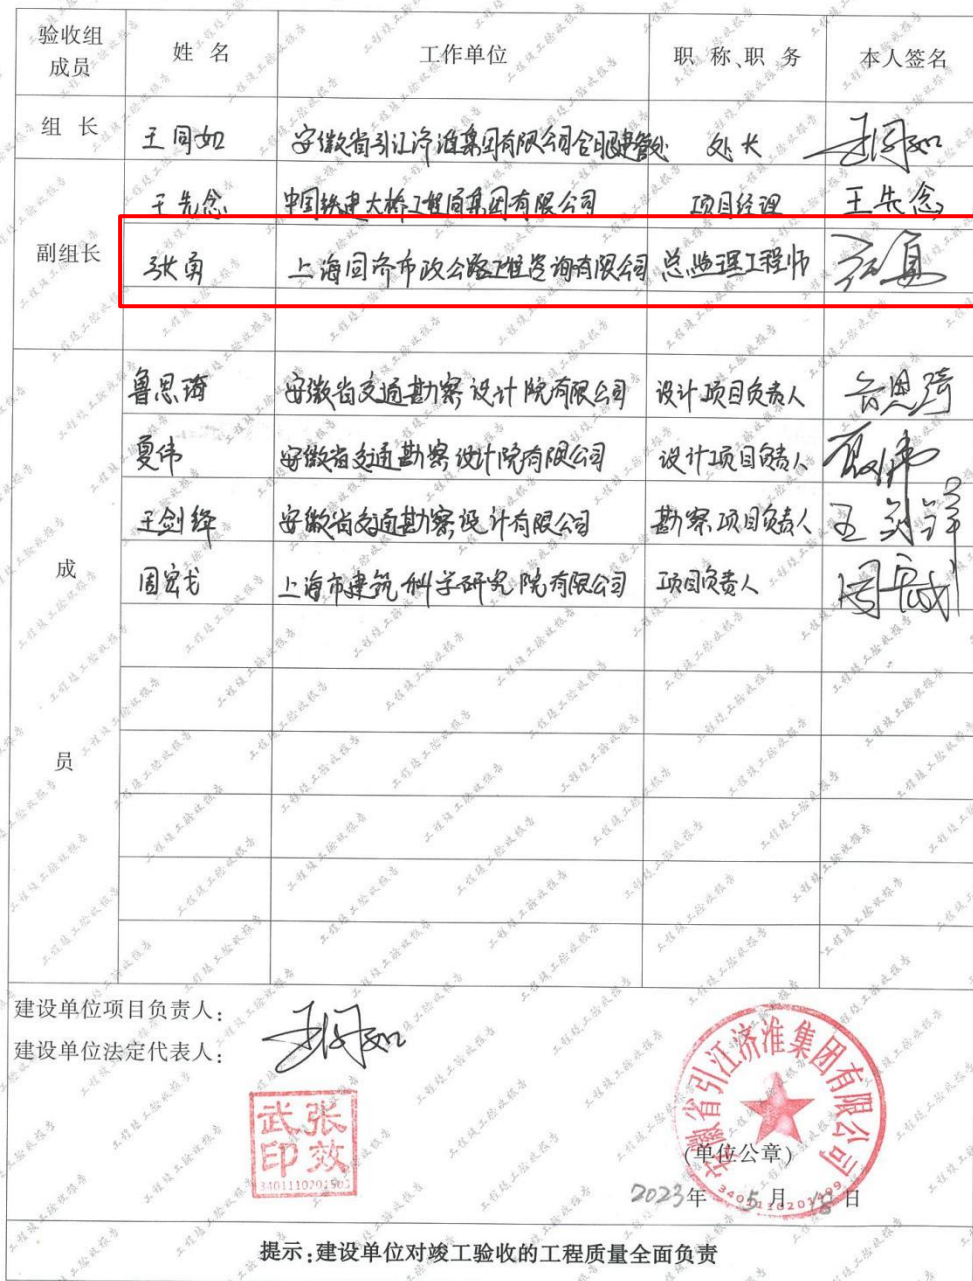 验收组成员 姓 名 工作单位 职 称、职 务 本人签名
组 长 王同如 安徽省引江济淮集团有限公司合肥建管处 处长 王同如
副组长
王先念 中国铁建大桥工程局集团有限公司 项目经理 王先念
张勇 上海同济市政公路工程咨询有限公司 总监理工程师 张勇
成员
鲁思琦 安徽省交通勘察设计院有限公司 设计项目负责人 鲁思琦
夏伟 安徽省交通勘察设计院有限公司 设计项目负责人 夏伟
王剑锋 安徽省交通勘察设计有限公司 勘察项目负责人 王剑锋
周宏戈 上海市建筑科学研究院有限公司 项目负责人
建设单位项目负责人: 王同如
建设单位法定代表人:
张效武印
安徽省引江济淮集团有限公司
(单位公章)
2023年 5月 18日
提示:建设单位对竣工验收的工程质量全面负责
工程竣工验收报告